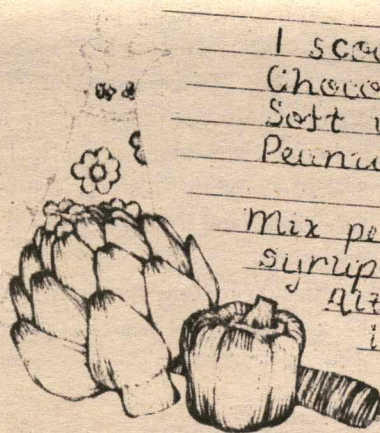 1 scoo
Choco
Soft
Peanu
Mix pe
syrup